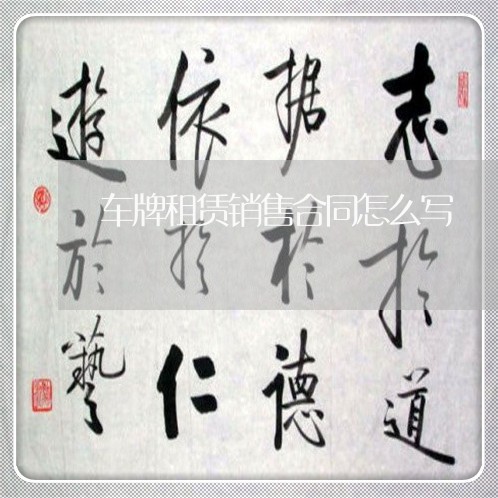 志於道
据於德
依於仁
遊於藝
车牌租赁销售合同怎么写